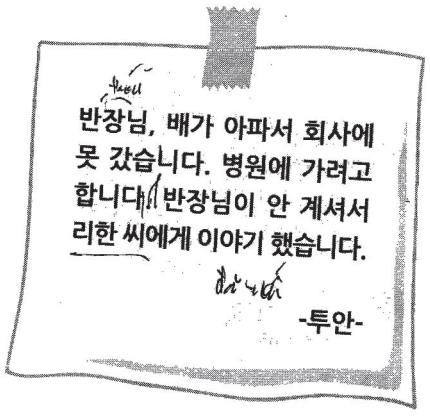 반장님, 배가 아파서 회사에
못 갔습니다. 병원에 가려고
합니다. 반장님이 안 계셔서
리한 씨에게 이야기 했습니다.
-투안-